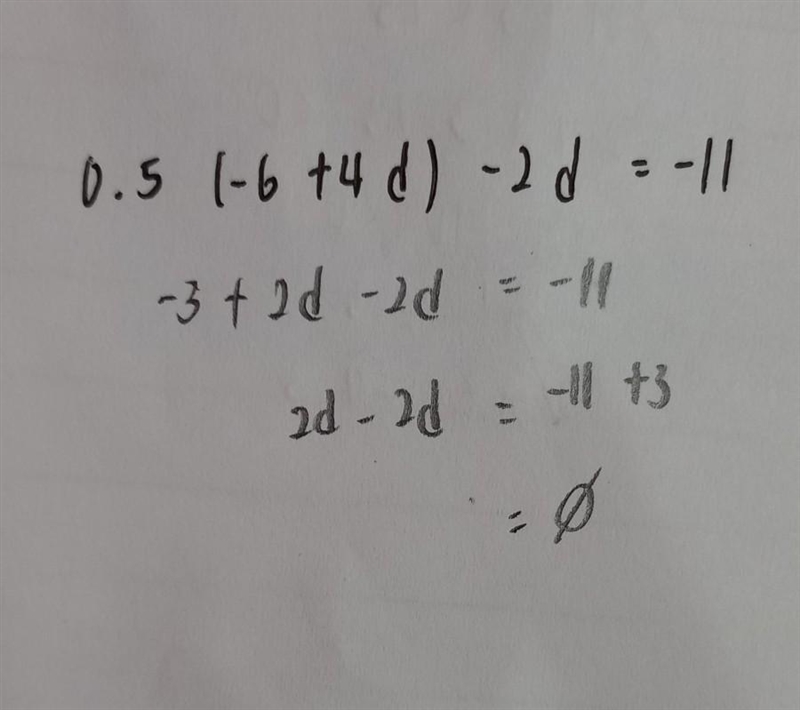 0.5 (-6 +4 d) -2d = -11
-3 + 2d -2d = -11
2d - 2d = -11 +3
= Ø